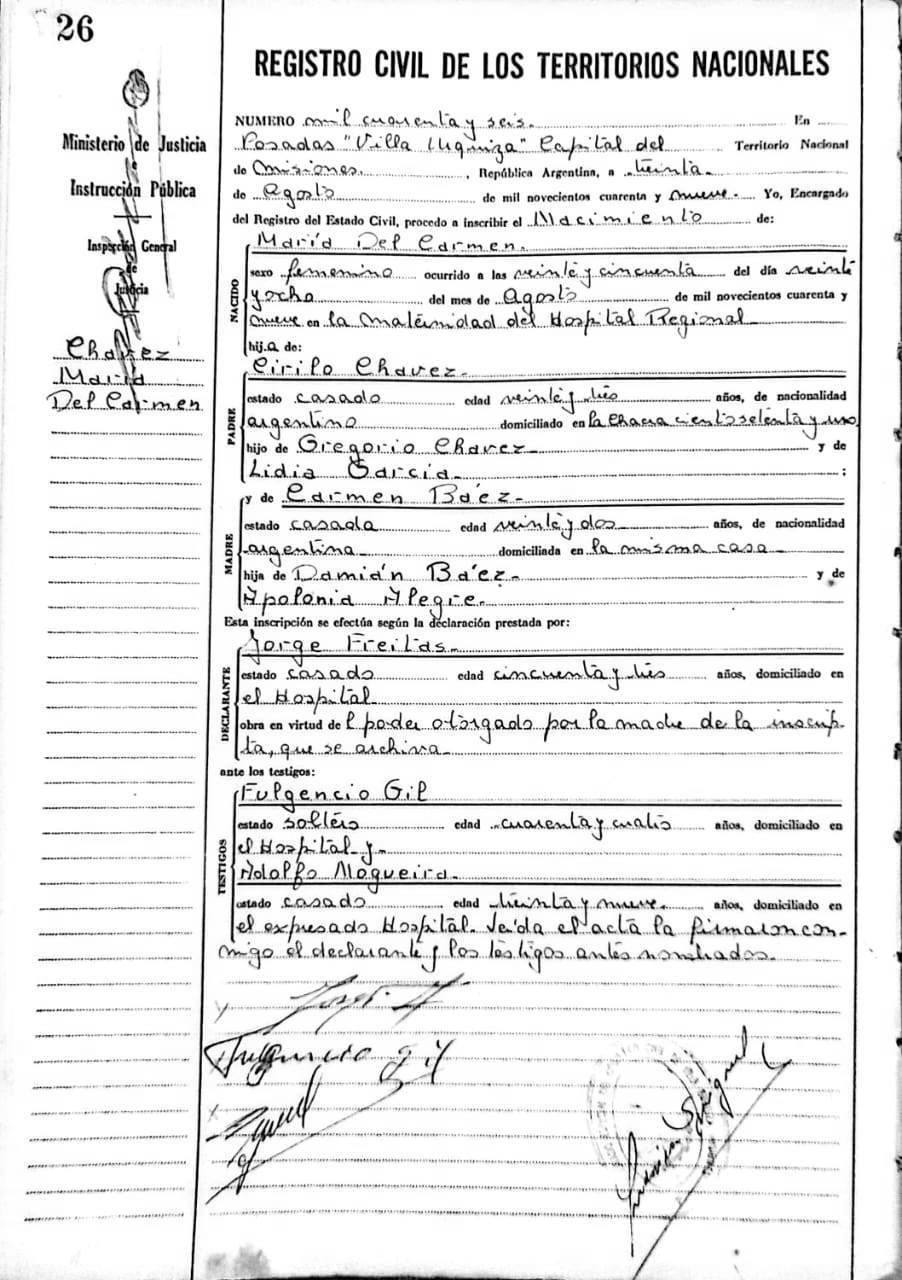 26
REGISTRO CIVIL DE LOS TERRITORIOS NACIONALES
Ministerio de Justicia
e
Instrucción Pública
Inspección General
de
Justicia
Chavez
María
Del Carmen
NUMERO mil cuarenta y seis. En
Posadas "Villa Urquiza" Capital del Territorio Nacional
de Misiones. , República Argentina, a treinta
de Agosto de mil novecientos cuarenta y nueve. Yo, Encargado
del Registro del Estado Civil, procedo a inscribir el Nacimiento de:
NACIDO
María Del Carmen.
sexo femenino ocurrido a las veinte y cincuenta del día veinte
y ocho del mes de Agosto de mil novecientos cuarenta y
nueve en la maternidad del Hospital Regional
hij.a de:
PADRE
Cirilo Chavez.
estado casado edad veinte y tres años, de nacionalidad
argentino domiciliado en la Chacra ciento setenta y uno
hijo de Gregorio Chavez y de
Lidia Garcia. ;
MADRE
y de Carmen Báez.
estado casada edad veinte y dos años, de nacionalidad
argentina domiciliada en la misma casa
hija de Damián Báez. y de
Apolonia Alegre.
Esta inscripción se efectúa según la declaración prestada por:
DECLARANTE
Jorge Freitas.
estado casado edad cincuenta y tres años, domiciliado en
el Hospital
obra en virtud de l poder otorgado por la madre de la inscrip-
ta, que se archiva
ante los testigos:
TESTIGOS
Fulgencio Gil
estado soltero edad cuarenta y cuatro años, domiciliado en
el Hospital y
Adolfo Nogueira.
estado casado edad treinta y nueve. años, domiciliado en
el expresado Hospital. Leída el acta la firmaron con-
migo el declarante y los testigos antes nombrados.
Fulgencio Gil